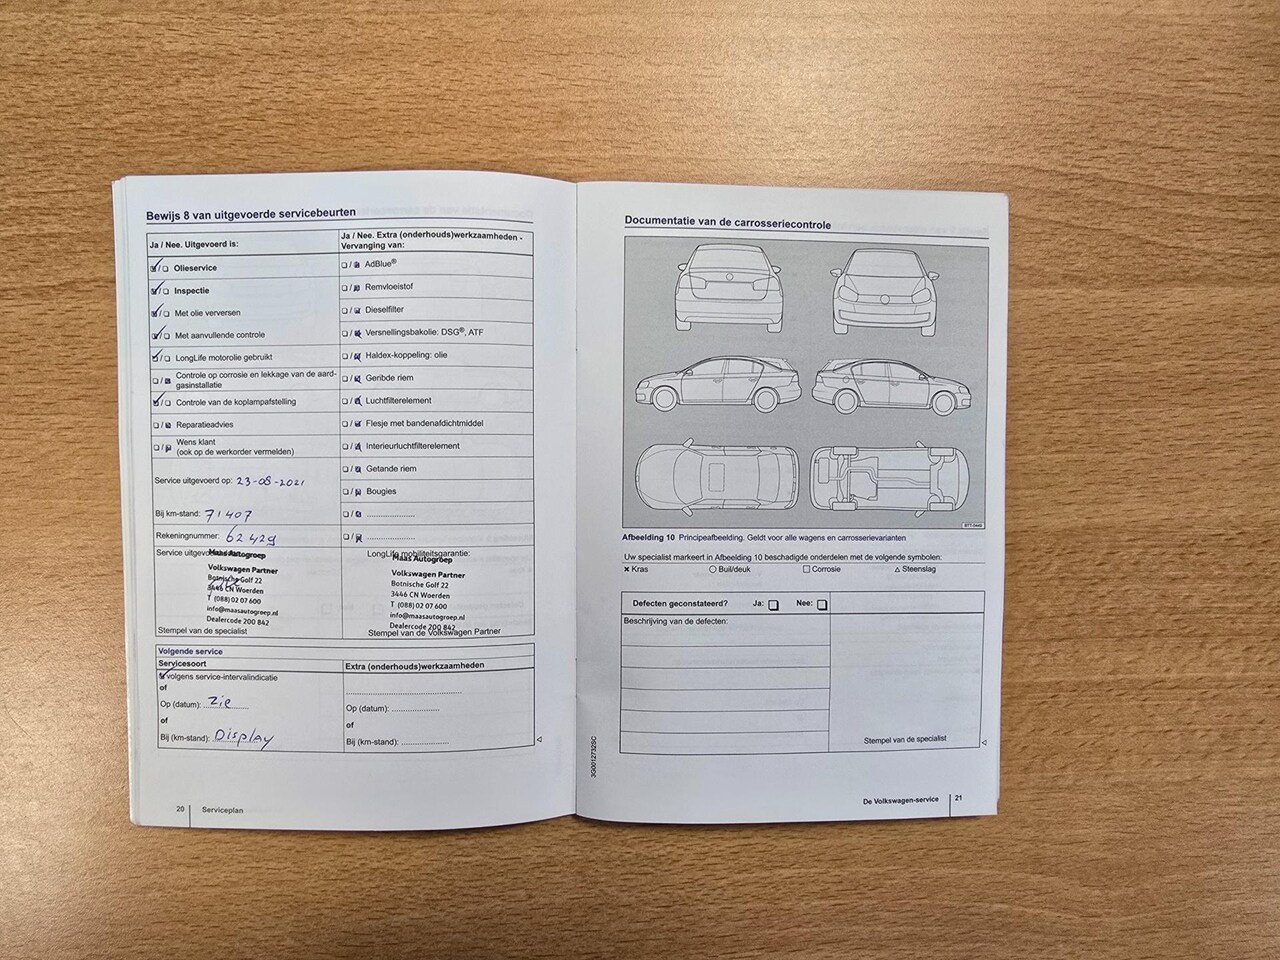 Bewijs 8 van uitgevoerde servicebeurten
Ja / Nee. Uitgevoerd is:
Olieservice
Inspectie
Met olie verversen
Met aanvullende controle
LongLife motorolie gebruikt
Controle op corrosie en lekkage van de aard-
gasinstallatie
Controle van de koplampafstelling
Reparatieadvies
Wens klant
(ook op de werkorder vermelden)
Service uitgevoerd op: 23-08-2021
Bij km-stand: 71407
Rekeningnummer: 62429
Ja / Nee. Extra (onderhouds)werkzaamheden -
Vervanging van:
AdBlue®
Remvloeistof
Dieselfilter
Versnellingsbakolie: DSG®, ATF
Haldex-koppeling: olie
Geribde riem
Luchtfilterelement
Flesje met bandenafdichtmiddel
Interieurluchtfilterelement
Getande riem
Bougies
Service uitgevo
Maas Autogroep
Volkswagen Partner
Botnische Golf 22
3446 CN Woerden
T (088) 02 07 600
info@maasautogroep.nl
Dealercode 200 842
Stempel van de specialist
LongLife mobiliteitsgarantie:
Maas Autogroep
Volkswagen Partner
Botnische Golf 22
3446 CN Woerden
T (088) 02 07 600
info@maasautogroep.nl
Dealercode 200 842
Stempel van de Volkswagen Partner
Volgende service
Servicesoort
volgens service-intervalindicatie
of
Op (datum): Zie
of
Bij (km-stand): Display
Extra (onderhouds)werkzaamheden
Op (datum):
of
Bij (km-stand):
20 Serviceplan
Documentatie van de carrosseriecontrole
Afbeelding 10 Principeafbeelding. Geldt voor alle wagens en carrosserievarianten
Uw specialist markeert in Afbeelding 10 beschadigde onderdelen met de volgende symbolen:
Kras Buil/deuk Corrosie Steenslag
Defecten geconstateerd? Ja: Nee:
Beschrijving van de defecten:
Stempel van de specialist
3G0012732SC
De Volkswagen-service 21